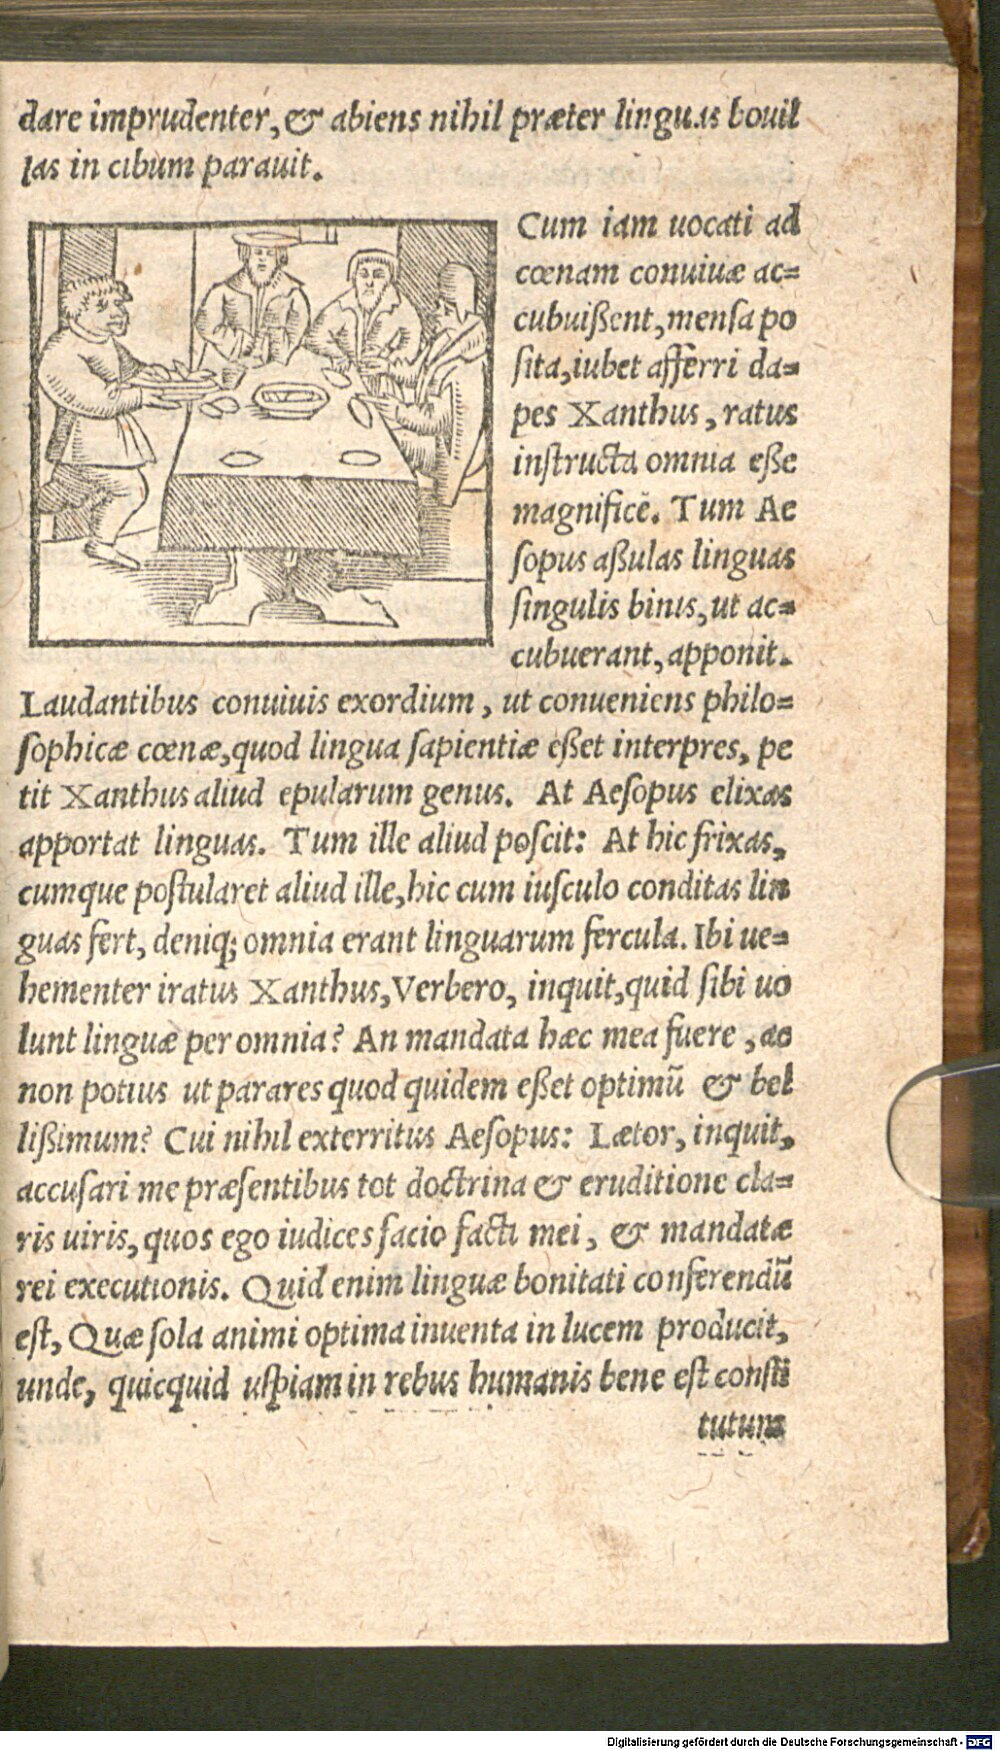 dare imprudenter, & abiens nihil præter linguas bouil
las in cibum parauit.
Cum iam uocati ad
cœnam conuiuæ ac=
cubuißent, mensa po
sita, iubet afferri da=
pes Xanthus, ratus
instructa omnia eße
magnificè. Tum Ae
sopus aßulas linguas
singulis binis, ut ac=
cubuerant, apponit.
Laudantibus conuiuis exordium, ut conueniens philo=
sophicæ cœnæ, quod lingua sapientiæ eßet interpres, pe
tit Xanthus aliud epularum genus. At Aesopus elixas
apportat linguas. Tum ille aliud poscit: At hic frixas,
cumque postularet aliud ille, hic cum iusculo conditas lin
guas fert, deniq; omnia erant linguarum fercula. Ibi ue=
hementer iratus Xanthus, Verbero, inquit, quid sibi uo
lunt linguæ per omnia? An mandata hæc mea fuere, ac
non potius ut parares quod quidem eßet optimũ & bel
lißimum? Cui nihil exterritus Aesopus: Lætor, inquit,
accusari me præsentibus tot doctrina & eruditione cla=
ris uiris, quos ego iudices facio facti mei, & mandatæ
rei executionis. Quid enim linguæ bonitati conferendũ
est, Quæ sola animi optima inuenta in lucem producit,
unde, quicquid uspiam in rebus humanis bene est consti
tutum
Digitalisierung gefördert durch die Deutsche Forschungsgemeinschaft - DFG